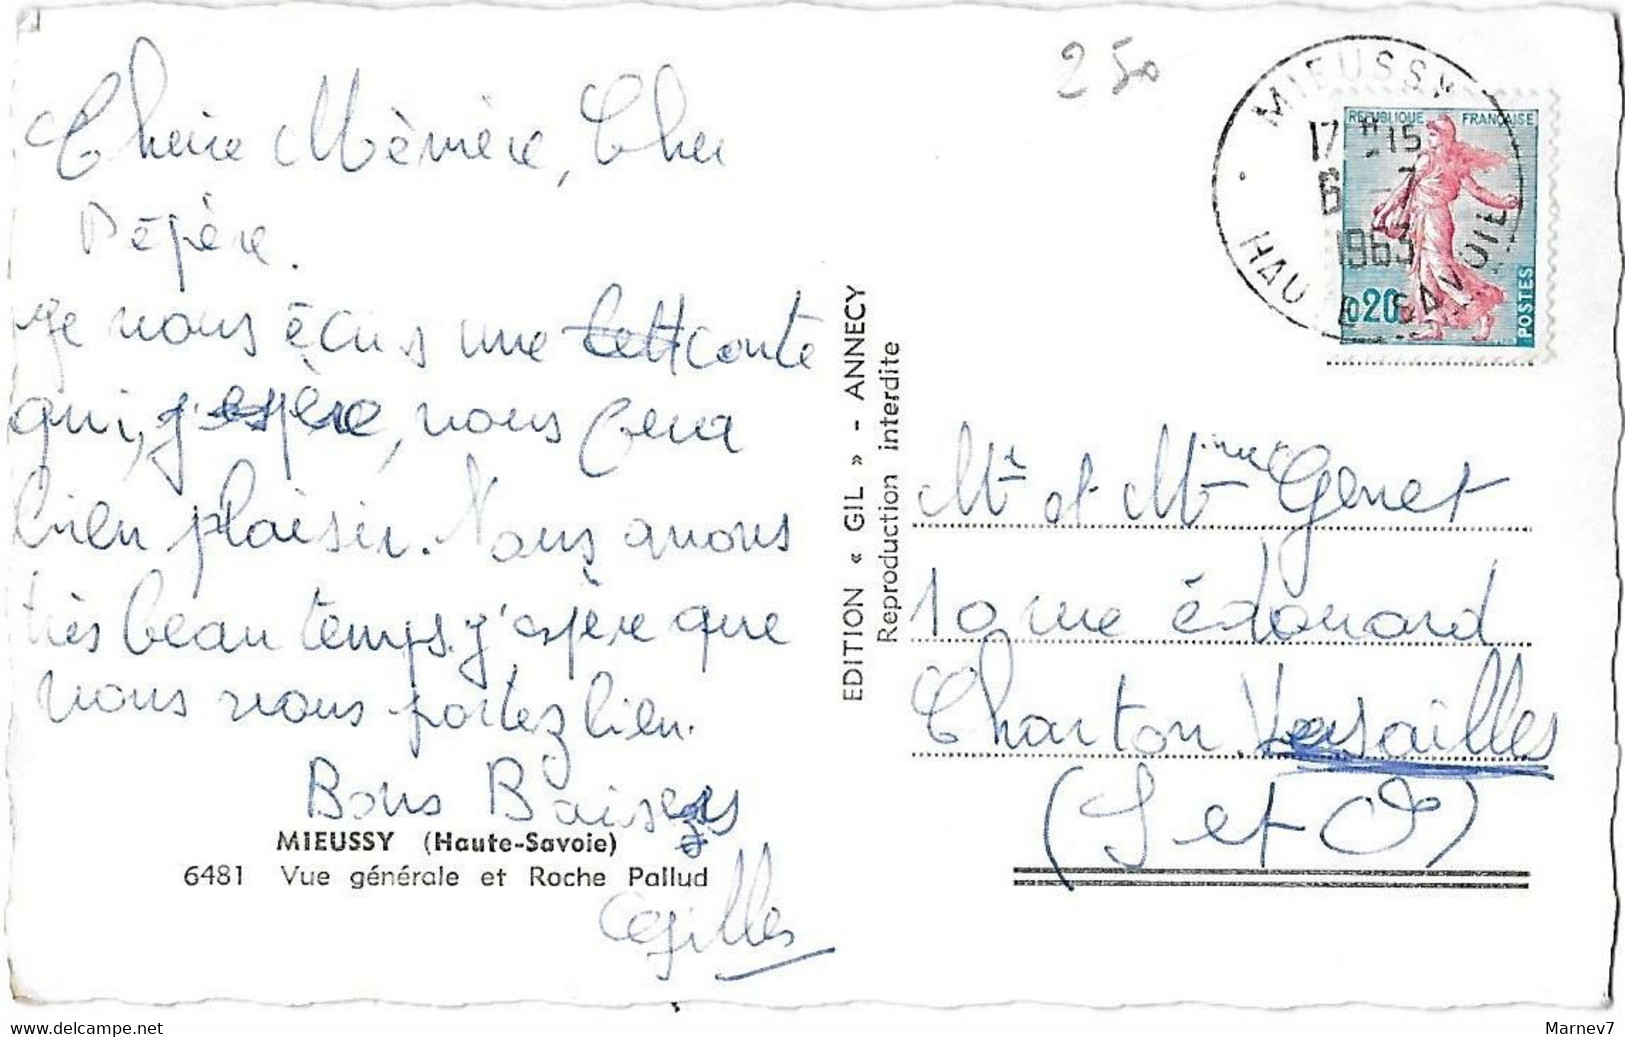 250
MIEUSSY
17H15
6-7
1963
HAUTE SAVOIE
REPUBLIQUE FRANÇAISE
0,20
POSTES
Cheire Mèmère, Cher
Pépère.
Je vous écris une carte
qui, j'espère, vous fera
bien plaisir. Nous avons
très beau temps. j'espère que
vous vous portez bien.
Bons Baisers
MIEUSSY (Haute-Savoie)
6481 Vue générale et Roche Pallud
EDITION « GIL » - ANNECY
Reproduction interdite
Mr et Mme Genet
10 rue édouard
Charton Versailles
(S et O)
delcampe.net
Marnev7